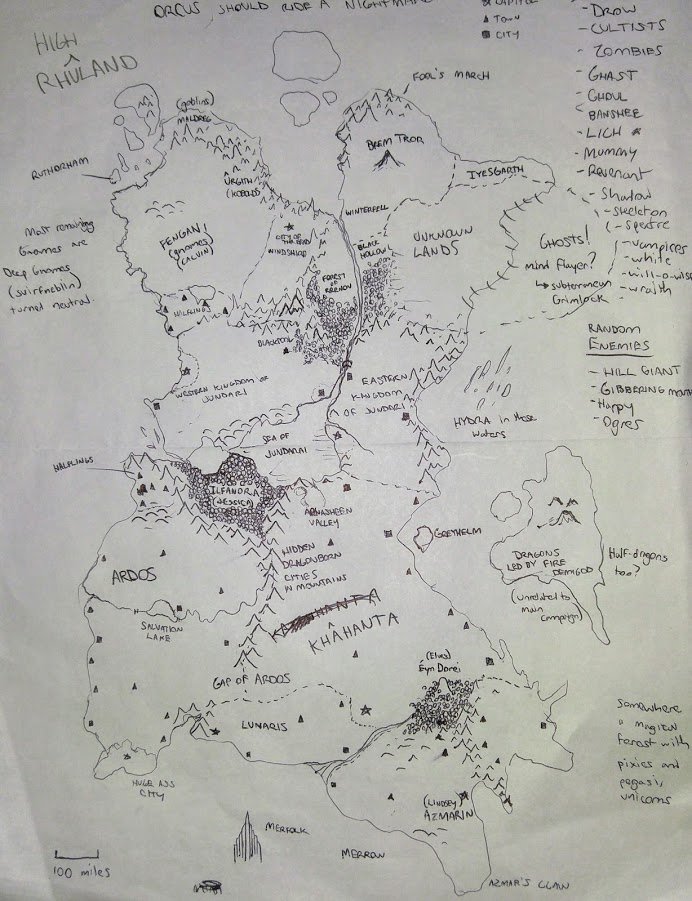 ORCUS SHOULD RIDE A NIGHTMARE
HIGH
^
RHÜLAND
CAPITOL
TOWN
CITY
- DROW
- CULTISTS
- ZOMBIES
- GHAST
- GHOUL
BANSHEE
- LICH
- MUMMY
- Revenant
- Shadow
- Skeleton
- Spectre
- Vampires
- white
- will-o-wisp
- wraith
FOOL'S MARCH
(goblins)
MALDREG
BREM TROR
RUTHORHAM
URGITH
(KOBOLDS)
IYESGARTH
WINTERFELL
FENGAN
(gnomes)
(CALVIN)
CITY OF
THE DEAD
WINDSHIRE
BLACK
HOLLOW
UNKNOWN
LANDS
GHOSTS!
mind flayer?
↳ subterranean
Grimlock
Most remaining
Gnomes are
Deep Gnomes
(svirfneblin)
turned neutral.
FOREST
OF
HALFLINGS
RANDOM
ENEMIES
- HILL GIANT
- GIBBERING
- Harpy
- Ogres
WESTERN KINGDOM OF
JUNDARI
EASTERN
KINGDOM
OF JUNDARI
HYDRA in these
waters
SEA OF
JUNDARAI
HALFLINGS
ILFANDRA
(JESSICA)
VALLEY
GREYHELM
HIDDEN
DRAGONBORN
CITIES
IN MOUNTAINS
ARDOS
DRAGONS
LED BY FIRE
DEMIGOD
(unrelated to
main
campaign)
Half-dragons
too?
KHÂHANTA
SALVATION
LAKE
GAP OF ARDOS
(Elves)
Eyn Dorei
LUNARIS
HUGE ASS
CITY
Somewhere
a magical
forest with
pixies and
pegasi,
unicorns
(LINDSEY)
AZMARIN
MERFOLK
MERROW
AZMAR'S CLAW
100 miles